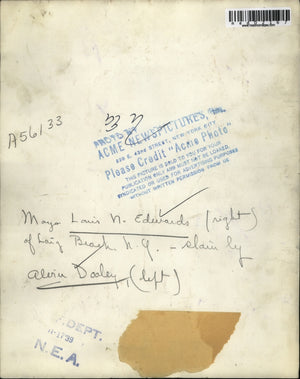 A56133
PHOTO BY
ACME NEWSPICTURES, INC.
220 E. 42ND STREET, NEW YORK CITY
Please Credit "Acme Photo"
THIS PICTURE IS SOLD TO YOU FOR YOUR
PUBLICATION ONLY AND MUST NOT BE LOANED,
SYNDICATED OR USED FOR ADVERTISING PURPOSES
WITHOUT WRITTEN PERMISSION FROM US
Mayor Louis N. Edwards (right)
of Long Beach N.Y. - slain by
Alvin Dooley, (left)
DEPT.
N.E.A.